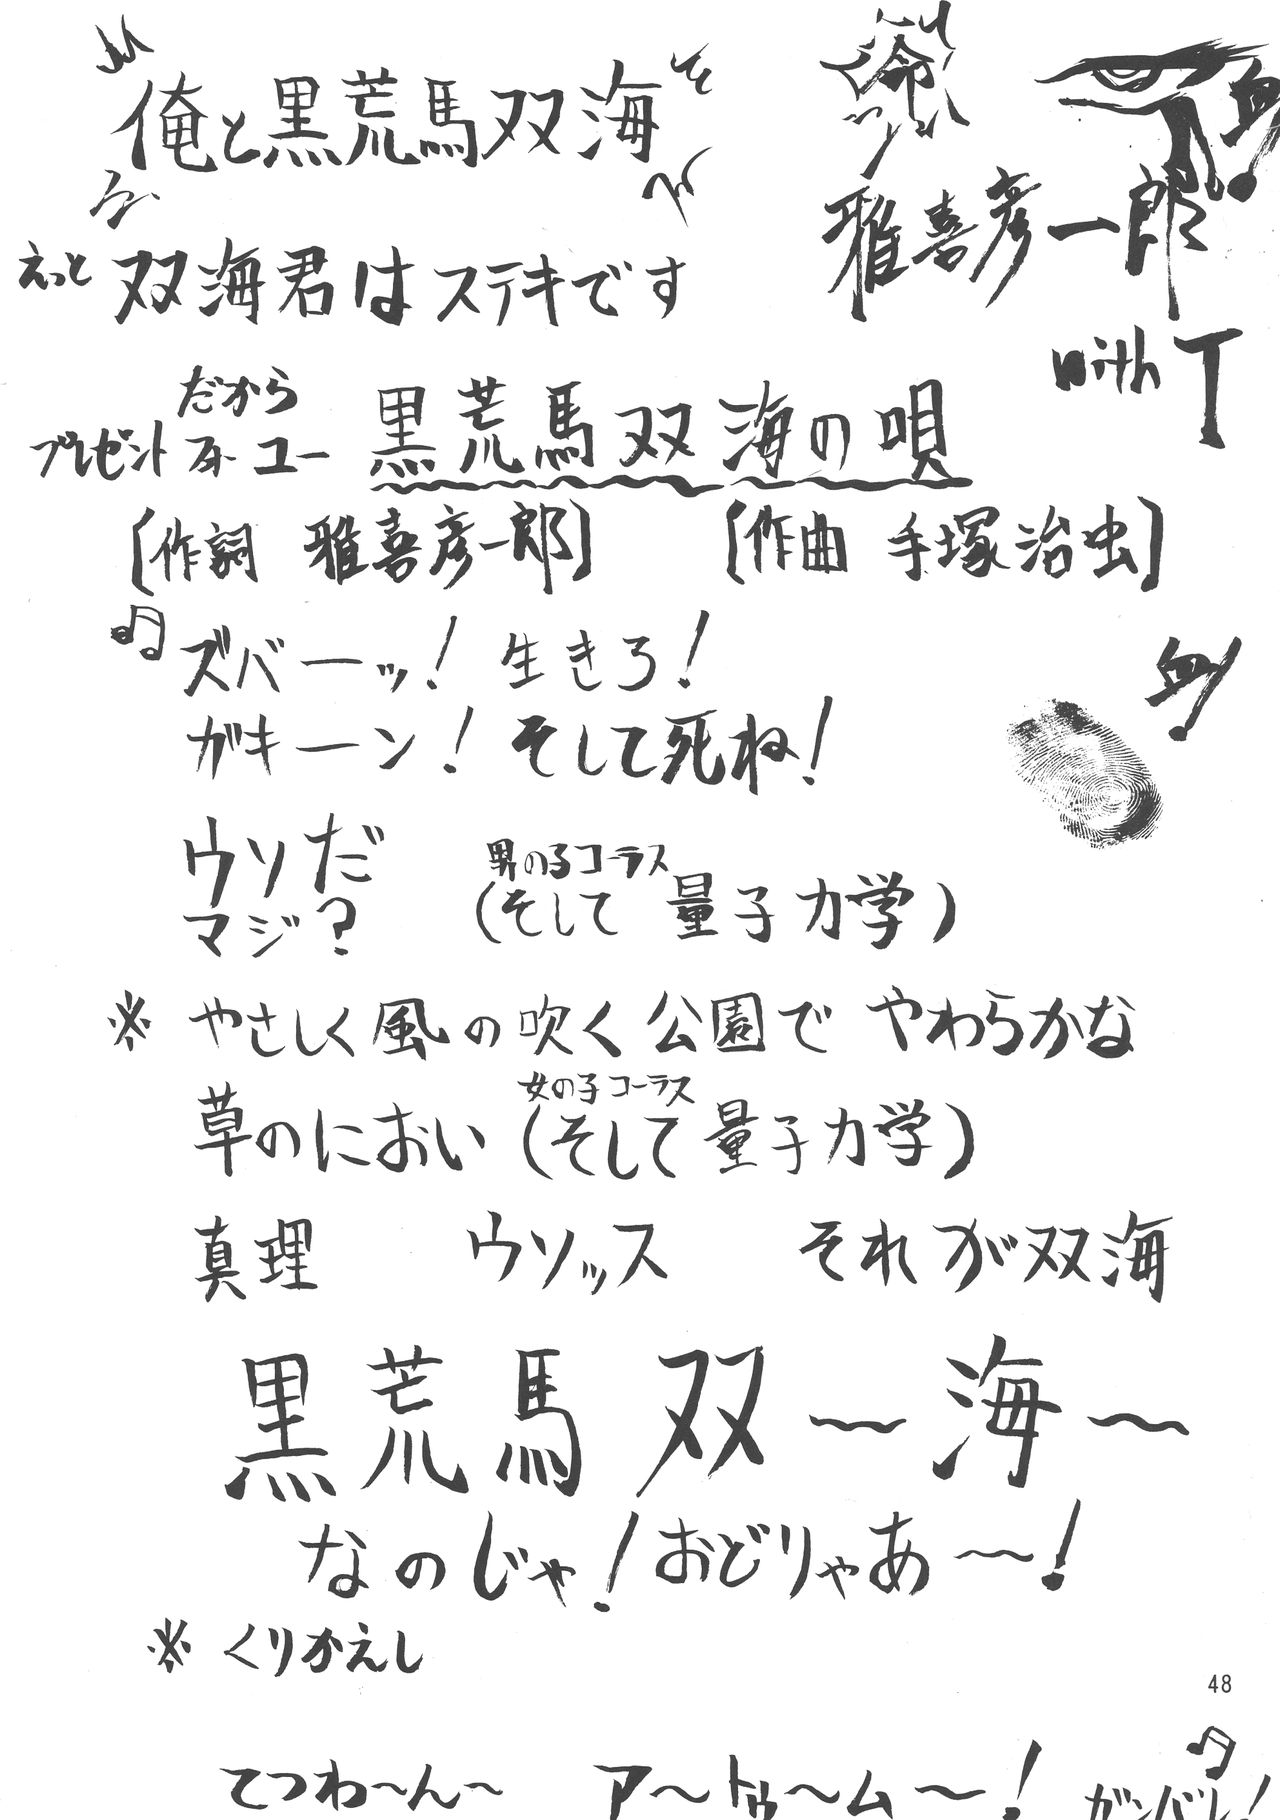 俺と黒荒馬双海
命
血!
雅喜彦一郎
with T
えっと 双海君はステキです
だから
プレゼント フォー ユー 黒荒馬双海の唄
[作詞 雅喜彦一郎] [作曲 手塚治虫]
♫ ズバーッ! 生きろ!
ガキーン! そして死ね!
血!
ウソだ
マジ?
男の子コーラス
(そして 量子力学)
※ やさしく風の吹く公園で やわらかな
女の子コーラス
草のにおい (そして 量子力学)
真理 ウソッス それが双海
黒荒馬双〜海〜
なのじゃ! おどりゃあ〜!
※ くりかえし
48
てつわ〜ん〜 ア〜トゥ〜ム〜! ガンバレ! ♫